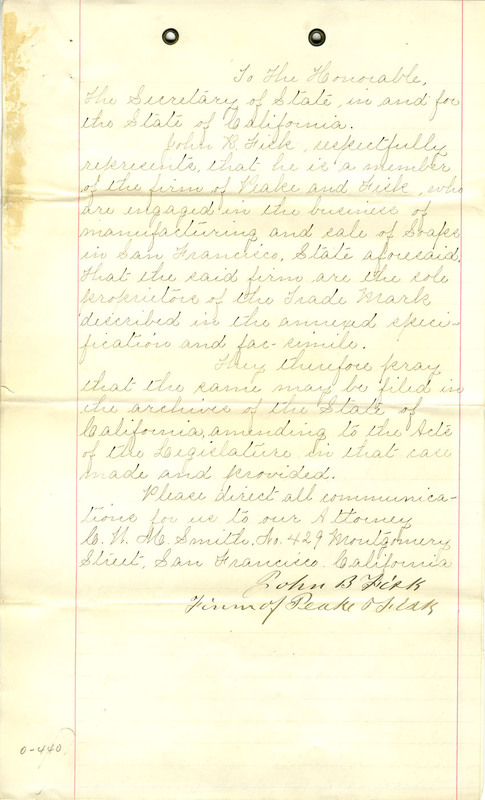 To The Honorable,
The Secretary of State, in and for
the State of California.
John B. Fisk, respectfully
represents, that he is a member
of the firm of Peake and Fisk, who
are engaged in the business of
manufacturing and sale of Soaps
in San Francisco, State aforesaid.
That the said firm are the sole
proprietors of the Trade Mark
described in the annexed speci-
fication and fac-simile.
They therefore pray
that the same may be filed in
the archives of the State of
California, amending to the Acts
of the Legislature in that case
made and provided.
Please direct all communica-
tions for us to our Attorney
C. W. M. Smith, No. 429 Montgomery
Street, San Francisco. California
John B Fisk
Firm of Peake & Fisk
0-440